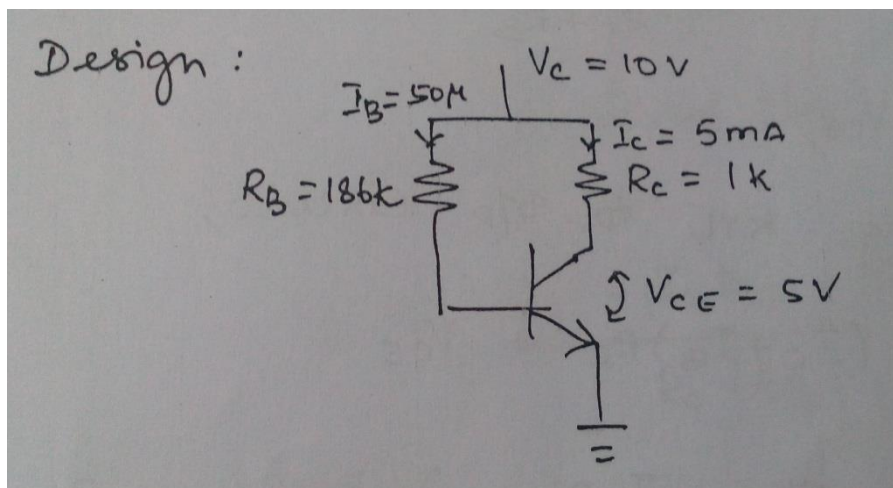 Design :
Vc = 10 V
IB = 50μ
Ic = 5mA
RB = 186k
Rc = 1k
VCE = 5V